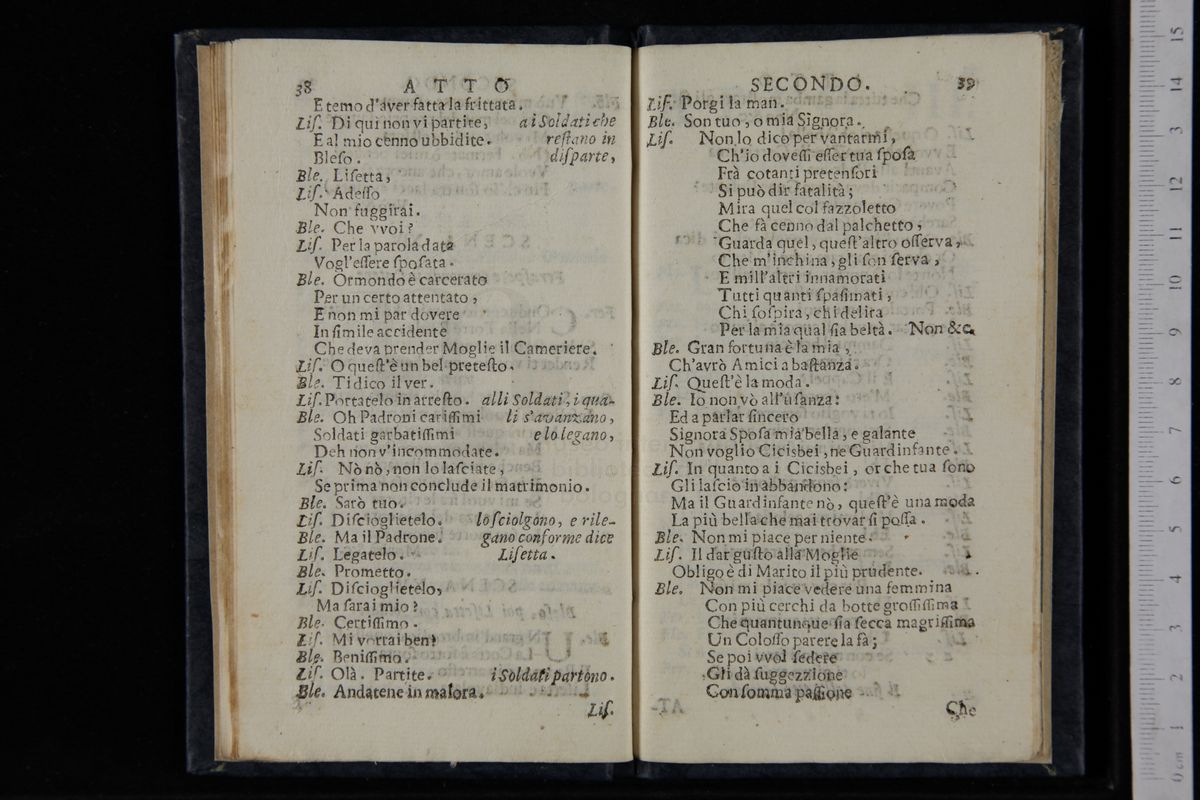 38 ATTO
E temo d'aver fatta la frittata.
Liſ. Di qui non vi partite, a i Soldati che
E al mio cenno ubbidite. reſtano in
Bleſo. diſparte,
Ble. Liſetta,
Liſ. Adeſſo
Non fuggirai.
Ble. Che vvoi?
Liſ. Per la parola data
Vogl'eſſere ſpoſata.
Ble. Ormondo è carcerato
Per un certo attentato,
E non mi par dovere
In ſimile accidente
Che deva prender Moglie il Cameriere.
Liſ. O queſt'è un bel preteſto.
Ble. Ti dico il ver.
Liſ. Portatelo in arreſto. alli Soldati, i qua-
Ble. Oh Padroni cariſſimi li s'avanzano,
Soldati garbatiſſimi e lo legano,
Deh non v'incommodate.
Liſ. Nò nò, non lo laſciate,
Se prima non conclude il matrimonio.
Ble. Sarò tuo.
Liſ. Diſcioglietelo. lo ſciolgono, e rile-
Ble. Ma il Padrone. gano conforme dice
Liſ. Legatelo. Liſetta.
Ble. Prometto.
Liſ. Diſcioglietelo,
Ma ſarai mio?
Ble. Certiſſimo.
Liſ. Mi vorrai ben?
Ble. Beniſſimo.
Liſ. Olà. Partite. i Soldati partono.
Ble. Andatene in malora.
Liſ.
SECONDO. 39
Liſ. Porgi la man.
Ble. Son tuo, o mia Signora.
Liſ. Non lo dico per vantarmi,
Ch'io doveſſi eſſer tua ſpoſa
Frà cotanti pretenſori
Si può dir fatalità;
Mira quel col fazzoletto
Che fà cenno dal palchetto,
Guarda quel, queſt'altro oſſerva,
Che m'inchina, gli ſon ſerva,
E mill'altri innamorati
Tutti quanti ſpaſimati,
Chi ſoſpira, chi delira
Per la mia qual ſia beltà. Non &c.
Ble. Gran fortuna è la mia,
Ch'avrò Amici a baſtanza.
Liſ. Queſt'è la moda.
Ble. Io non vò all'uſanza:
Ed a parlar ſincero
Signora Spoſa mia bella, e galante
Non voglio Cicisbei, ne Guardinfante.
Liſ. In quanto a i Cicisbei, or che tua ſono
Gli laſcio in abbandono:
Ma il Guardinfante nò, queſt'è una moda
La più bella che mai trovar ſi poſſa.
Ble. Non mi piace per niente.
Liſ. Il dar guſto alla Moglie
Obligo è di Marito il più prudente.
Ble. Non mi piace vedere una femmina
Con più cerchi da botte groſſiſſima
Che quantunque ſia ſecca magriſſima
Un Coloſſo parere la fà;
Se poi vvol ſedere
Gli dà ſuggezzione
Con ſomma paſſione
Che